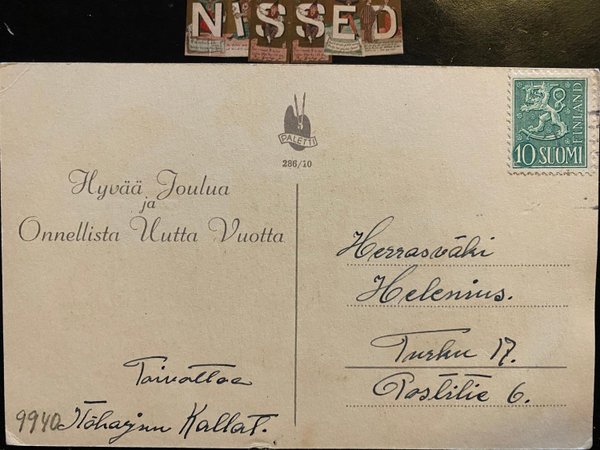 NISSED
PALETTI
286/10
10 SUOMI
FINLAND
Hyvää Joulua
ja
Onnellista Uutta Vuotta
Herrasväki
Helenius.
Turku 17.
Postitie 6.
Toivottaa
9940 Kallat.